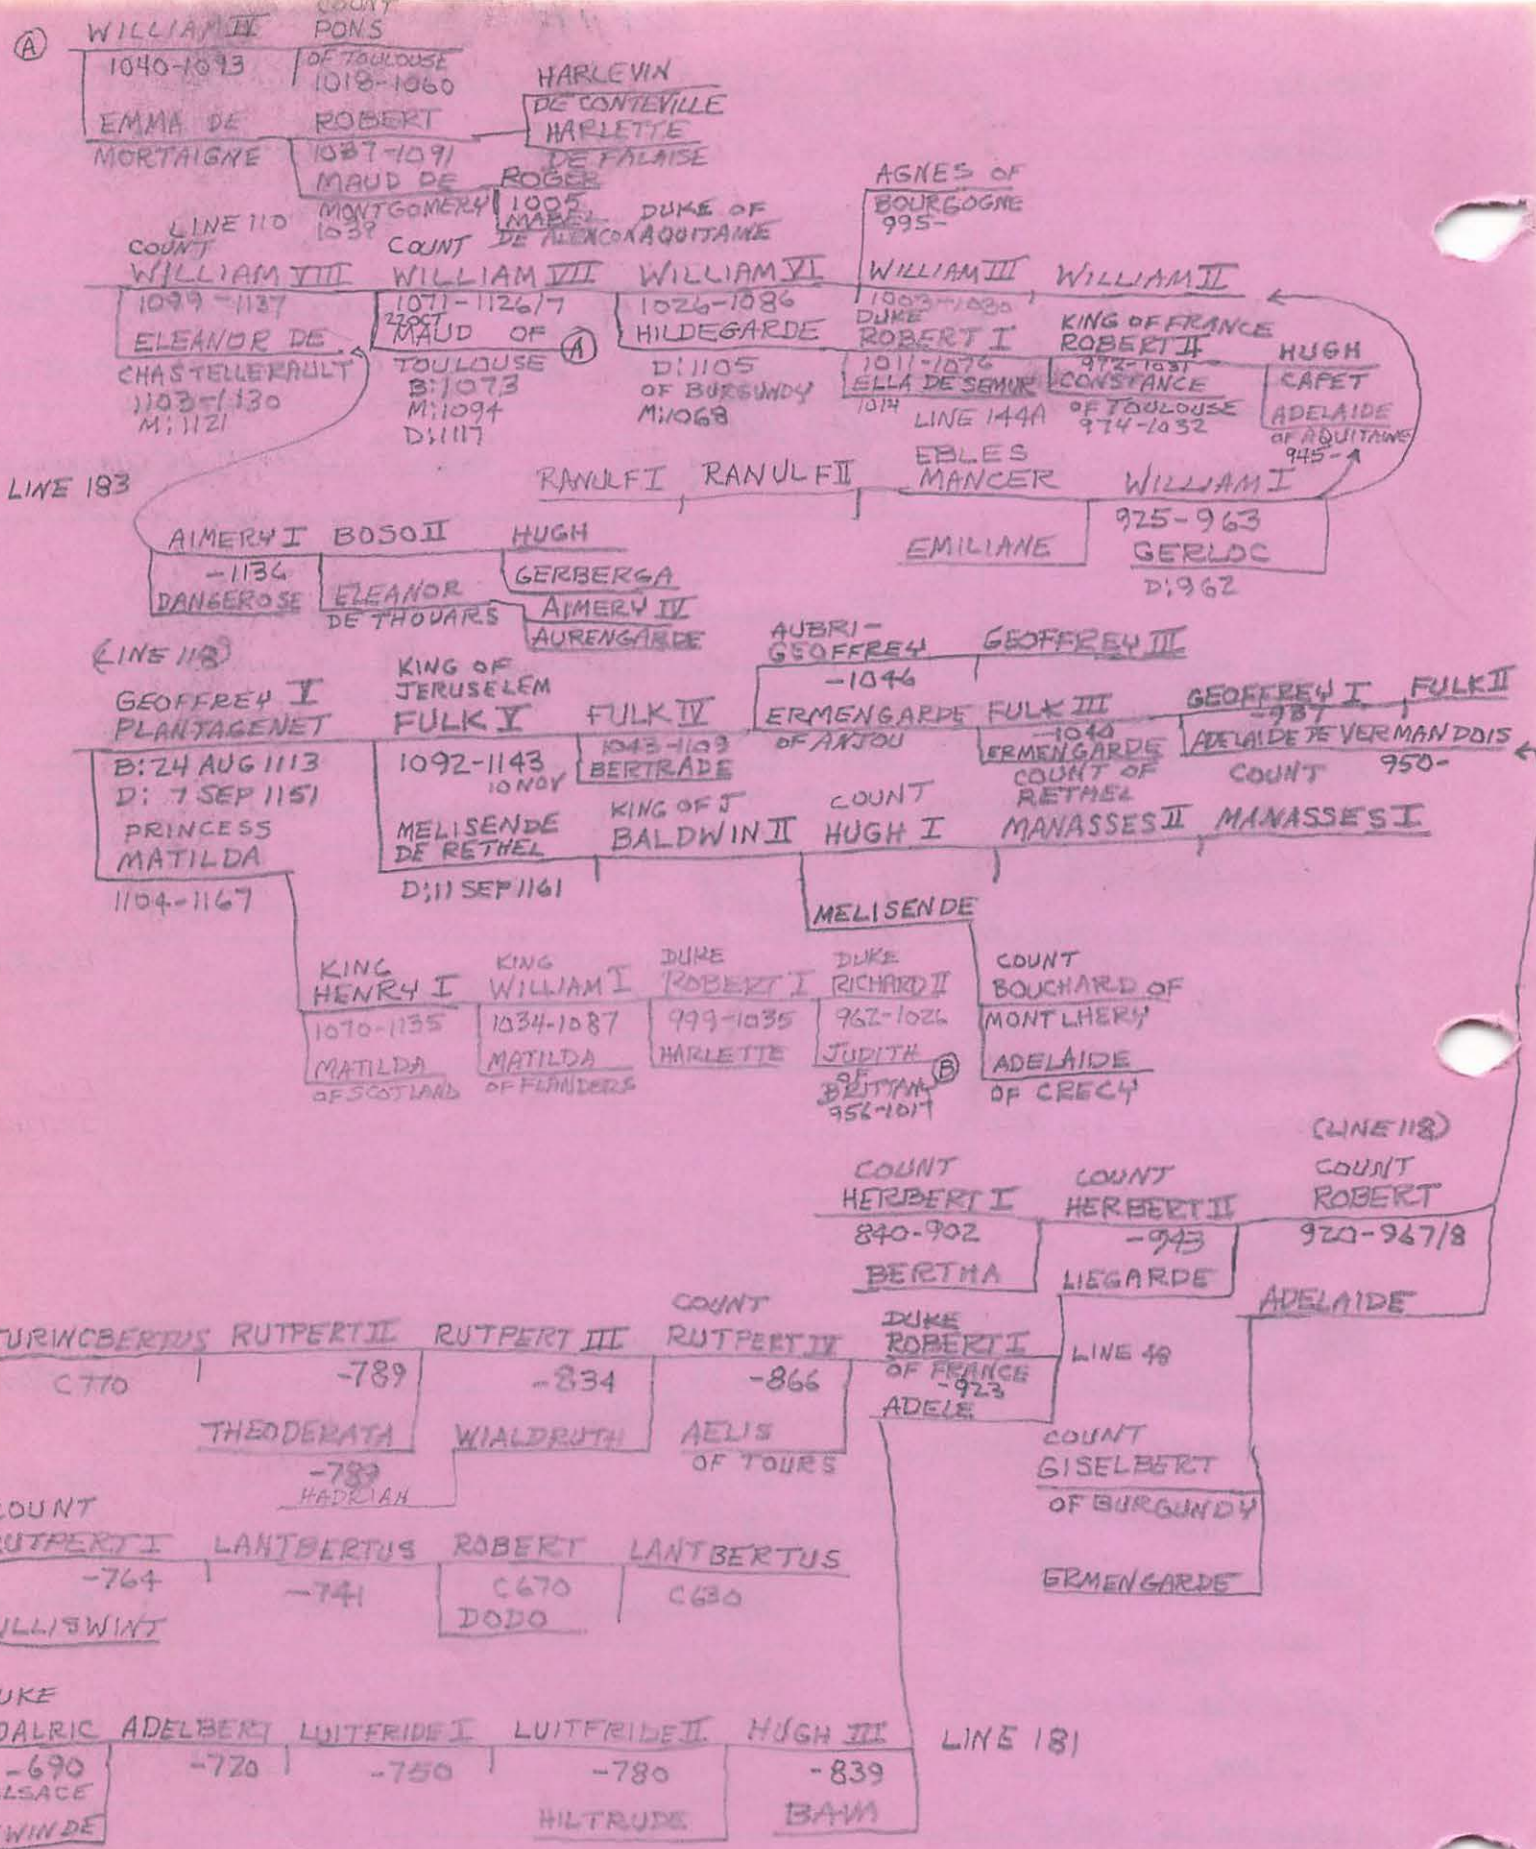 A
WILLIAM IV
COUNT
PONS
1040-1093
OF TOULOUSE
1018-1060
EMMA DE
MORTAIGNE
ROBERT
1037-1091
MAUD DE
MONTGOMERY
1039
HARLEVIN
DE CONTEVILLE
HARLETTE
DE FALAISE
ROGER
1005
MABEL
DE ALENCON
LINE 110
COUNT
WILLIAM VIII
1099-1137
ELEANOR DE
CHASTELLERAULT
1103-1130
M:1121
COUNT
WILLIAM VII
1071-1126/7
22 OCT
MAUD OF
TOULOUSE
A
B:1073
M:1094
D:1117
DUKE OF
AQUITAINE
WILLIAM VI
1026-1086
HILDEGARDE
D:1105
OF BURGUNDY
M:1068
AGNES OF
BOURGOGNE
995-
WILLIAM III
1003-1030
WILLIAM II
DUKE
ROBERT I
1011-1076
ELLA DE SEMUR
1014
LINE 144A
KING OF FRANCE
ROBERT II
972-1031
CONSTANCE
OF TOULOUSE
974-1032
HUGH
CAPET
ADELAIDE
OF AQUITAINE
945-
LINE 183
RANULF I
RANULF II
EBLES
MANCER
EMILIANE
WILLIAM I
925-963
GERLOC
D:962
AIMERY I
-1136
DANGEROSE
BOSO II
ELEANOR
DE THOUARS
HUGH
GERBERGA
AIMERY IV
AURENGARDE
(LINE 118)
GEOFFREY V
PLANTAGENET
B:24 AUG 1113
D: 7 SEP 1151
PRINCESS
MATILDA
1104-1167
KING OF
JERUSELEM
FULK V
1092-1143
10 NOV
MELISENDE
DE RETHEL
D:11 SEP 1161
FULK IV
1043-1109
BERTRADE
AUBRI-
GEOFFREY
-1046
ERMENGARDE
OF ANJOU
GEOFFREY III
FULK III
-1040
ERMENGARDE
GEOFFREY I
-987
ADELAIDE DE VERMANDOIS
950-
FULK II
KING OF J
BALDWIN II
COUNT
HUGH I
COUNT OF
RETHEL
MANASSES II
COUNT
MANASSES I
MELISENDE
COUNT
BOUCHARD OF
MONTLHERY
ADELAIDE
OF CRECY
KING
HENRY I
1070-1135
MATILDA
OF SCOTLAND
KING
WILLIAM I
1034-1087
MATILDA
OF FLANDERS
DUKE
ROBERT I
999-1035
HARLETTE
DUKE
RICHARD II
962-1026
JUDITH
OF
BRITTANY
956-1017
B
COUNT
HERBERT I
840-902
BERTHA
COUNT
HERBERT II
-943
LIEGARDE
(LINE 118)
COUNT
ROBERT
920-967/8
ADELAIDE
TURINCBERTUS
C770
RUTPERT II
-789
THEODERATA
-789
HADRIAN
RUTPERT III
-834
WIALDRUTH
COUNT
RUTPERT IV
-866
AELIS
OF TOURS
DUKE
ROBERT I
OF FRANCE
-923
ADELE
LINE 48
COUNT
GISELBERT
OF BURGUNDY
ERMENGARDE
COUNT
RUTPERT I
-764
LANTBERTUS
-741
ROBERT
C670
DODO
LANTBERTUS
C630
ADELBERT
-690
-720
LUITFRIDE I
-750
LUITFRIDE II
-780
HILTRUDE
HUGH III
-839
BAVA
LINE 181